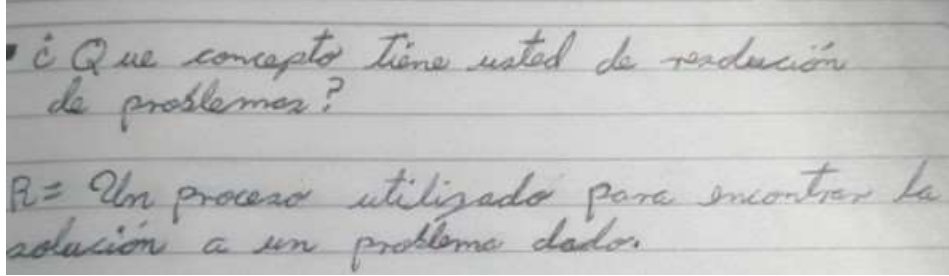 • ¿Que concepto tiene usted de resolución
de problemas?
R= Un proceso utilizado para encontrar la
solución a un problema dado.